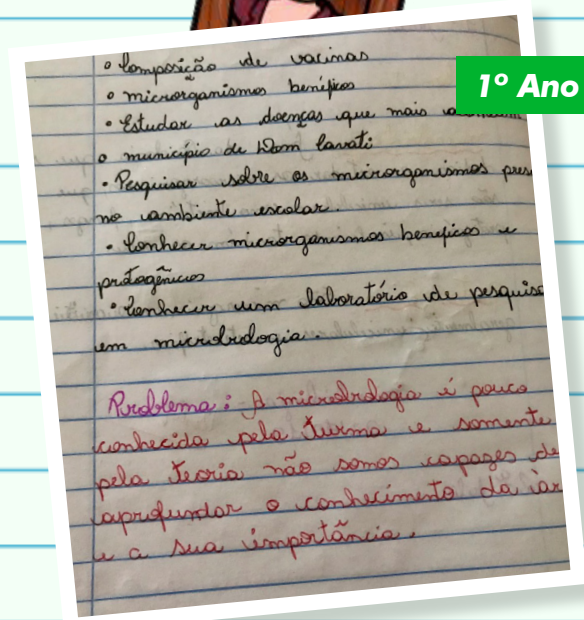 • Composição de vacinas
1º Ano
• microorganismos benéficos
• Estudar as doenças que mais
o município de Dom Cavati
• Pesquisar sobre os microrganismos pres
no ambiente escolar.
• Conhecer microorganismos benéficos e
patogênicos
• Conhecer um laboratório de pesquisa
em microbiologia.
Problema: A microbiologia é pouco
conhecida pela turma e somente
pela teoria não somos capazes de
aprofundar o conhecimento da
e a sua importância.